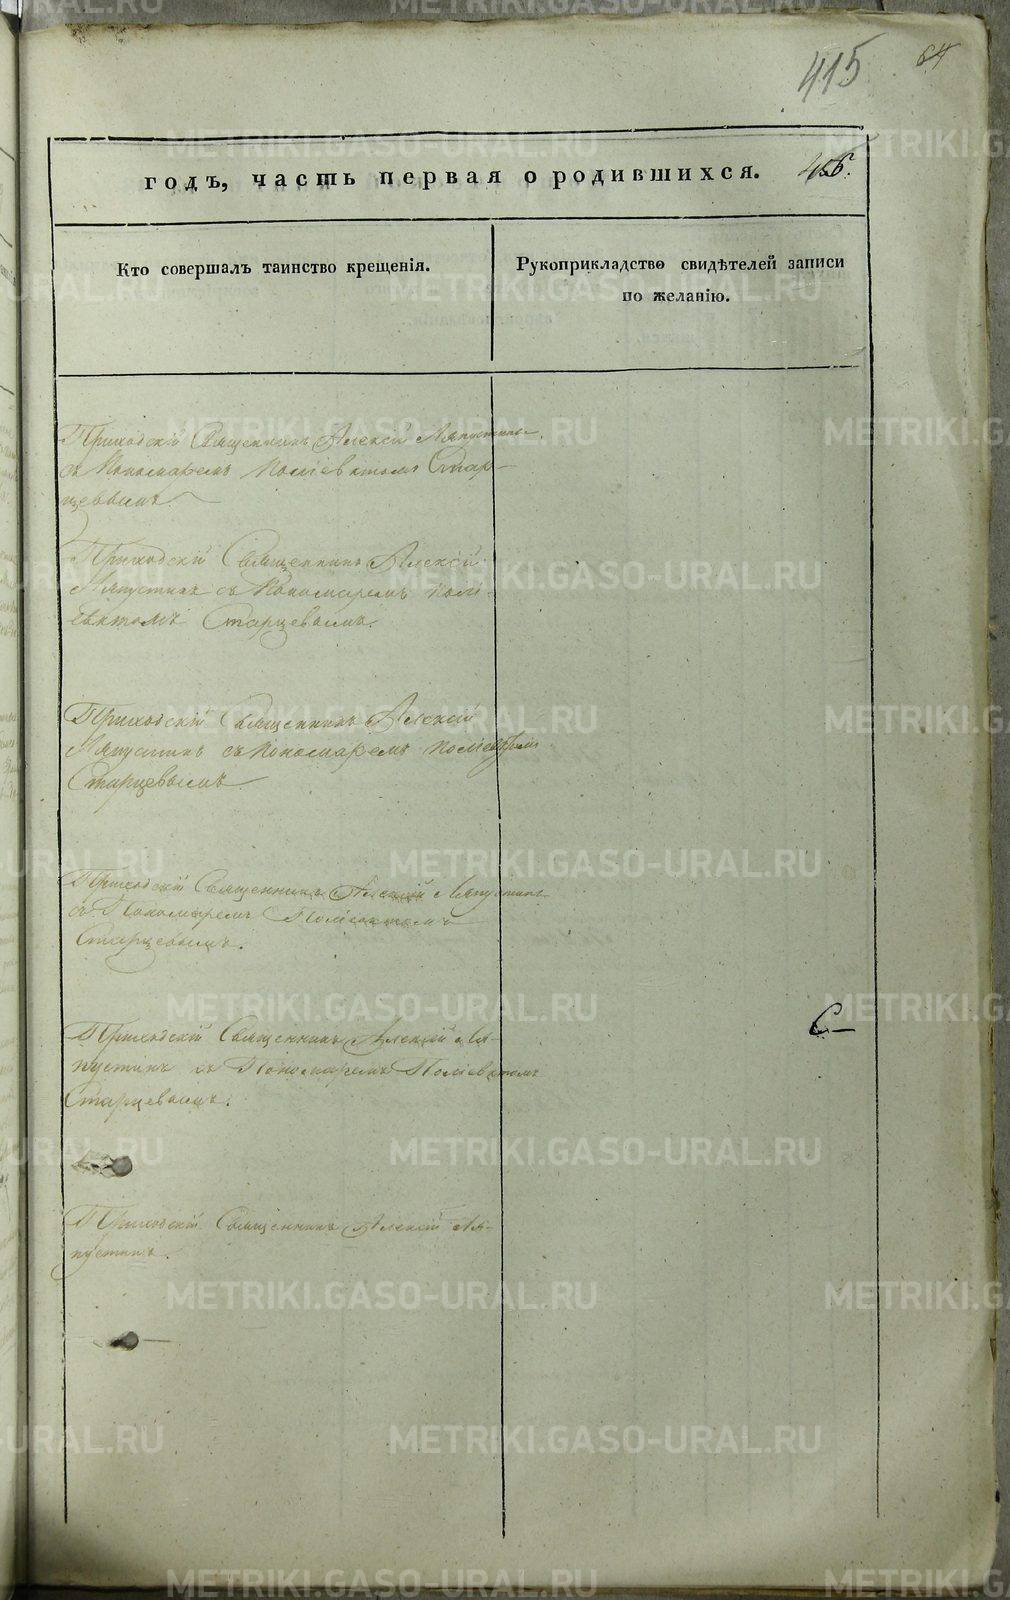 415
64
годъ, часть первая о родившихся.
Кто совершалъ таинство крещенія.
Рукоприкладство свидѣтелей записи
по желанію.
Приходскій Священникъ Алексій Ляпустинъ
съ Пономаремъ Поліевктомъ Стар-
цевымъ.
Приходскій Священникъ Алексій
Ляпустинъ съ Пономаремъ Полі-
евктомъ Старцевымъ.
Приходскій Священникъ Алексій
Ляпустинъ съ Пономаремъ Поліевктомъ
Старцевымъ
Приходскій Священникъ Алексій Ляпустинъ
съ Пономаремъ Поліевктомъ
Старцевымъ.
Приходскій Священникъ Алексій Ля-
пустинъ съ Пономаремъ Поліевктомъ
Старцевымъ.
Приходскій Священникъ Алексій Ля-
пустинъ.
METRIKI.GASO-URAL.RU